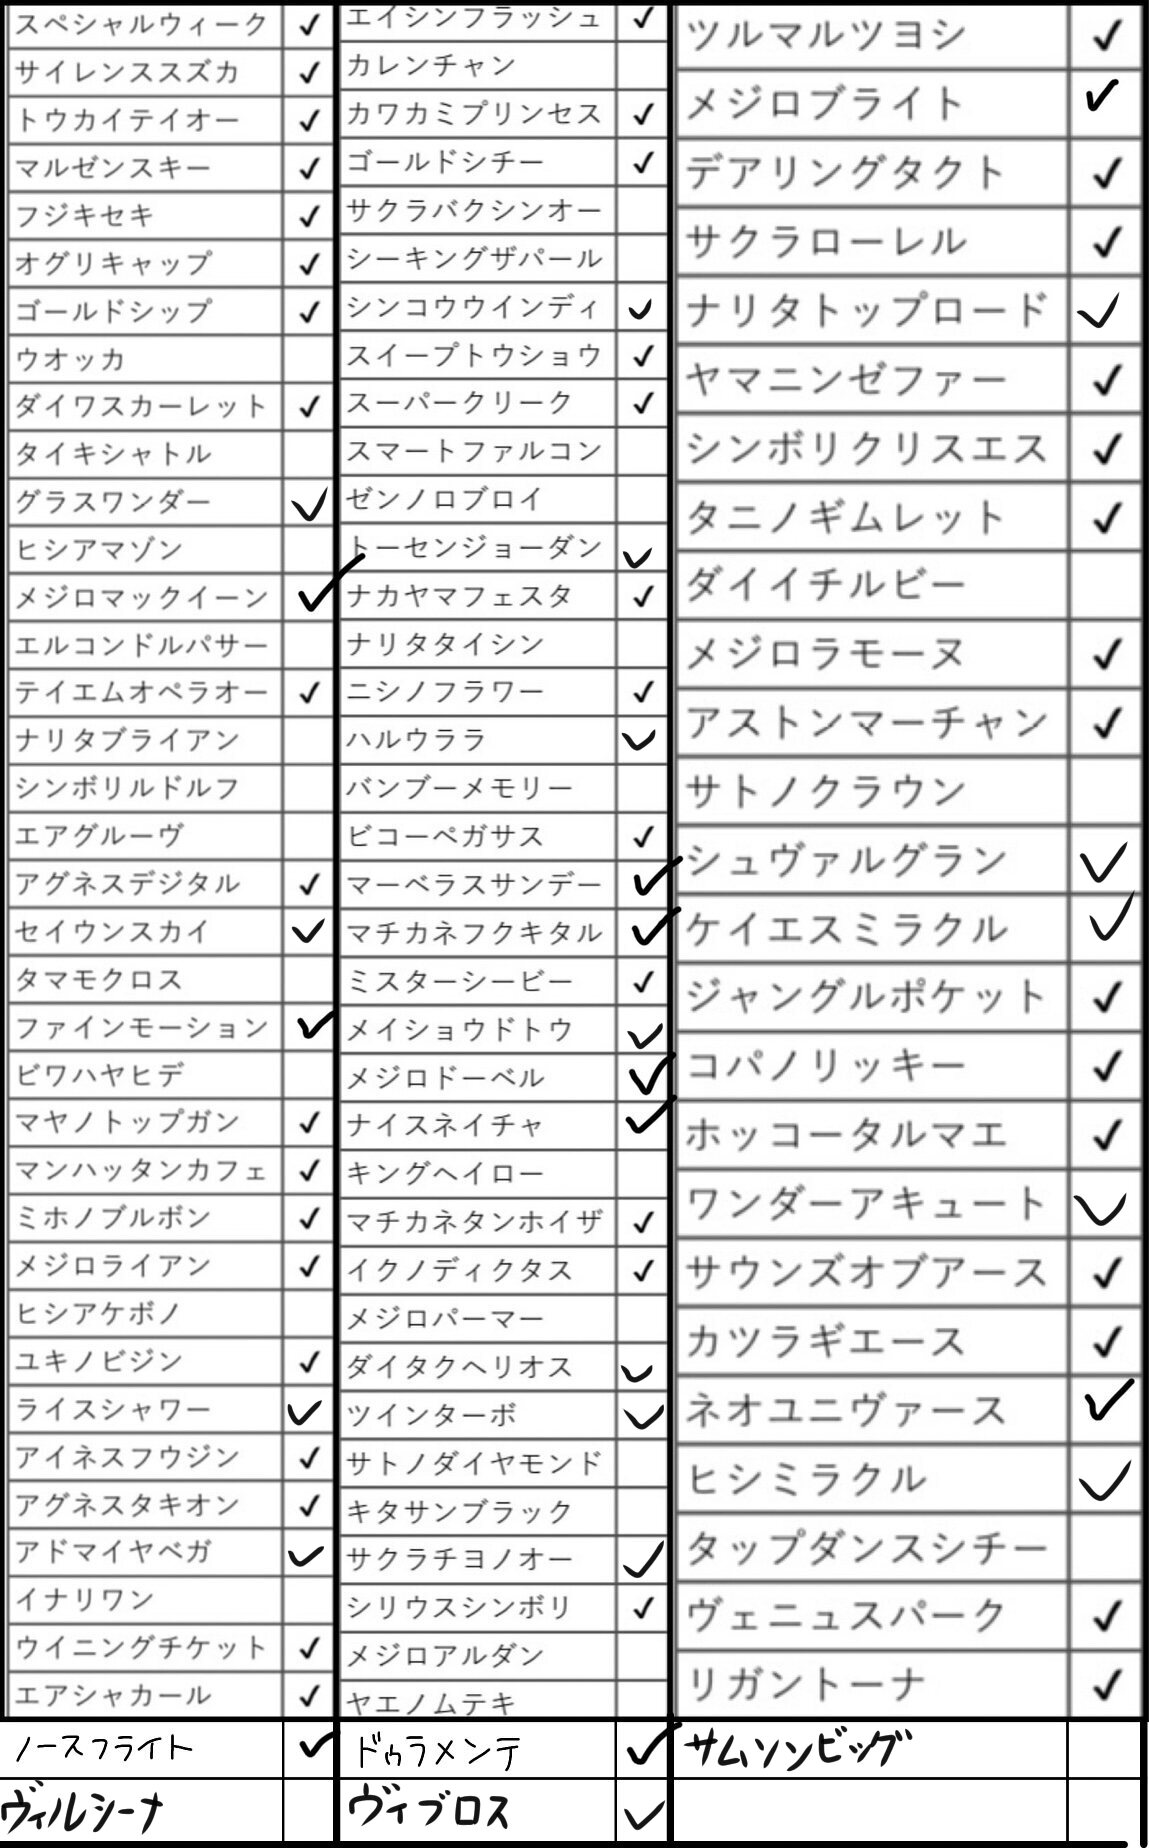 スペシャルウィーク ✓
サイレンススズカ ✓
トウカイテイオー ✓
マルゼンスキー ✓
フジキセキ ✓
オグリキャップ ✓
ゴールドシップ ✓
ウオッカ
ダイワスカーレット ✓
タイキシャトル
グラスワンダー ✓
ヒシアマゾン
メジロマックイーン ✓
エルコンドルパサー
テイエムオペラオー ✓
ナリタブライアン
シンボリルドルフ
エアグルーヴ
アグネスデジタル ✓
セイウンスカイ ✓
タマモクロス
ファインモーション ✓
ビワハヤヒデ
マヤノトップガン ✓
マンハッタンカフェ ✓
ミホノブルボン ✓
メジロライアン ✓
ヒシアケボノ
ユキノビジン ✓
ライスシャワー ✓
アイネスフウジン ✓
アグネスタキオン ✓
アドマイヤベガ ✓
イナリワン
ウイニングチケット ✓
エアシャカール ✓
ノースフライト ✓
ヴィルシーナ
エイシンフラッシュ ✓
カレンチャン
カワカミプリンセス ✓
ゴールドシチー ✓
サクラバクシンオー
シーキングザパール
シンコウウインディ ✓
スイープトウショウ ✓
スーパークリーク ✓
スマートファルコン
ゼンノロブロイ
トーセンジョーダン ✓
ナカヤマフェスタ ✓
ナリタタイシン
ニシノフラワー ✓
ハルウララ ✓
バンブーメモリー
ビコーペガサス ✓
マーベラスサンデー ✓
マチカネフクキタル ✓
ミスターシービー ✓
メイショウドトウ ✓
メジロドーベル ✓
ナイスネイチャ ✓
キングヘイロー
マチカネタンホイザ ✓
イクノディクタス ✓
メジロパーマー
ダイタクヘリオス ✓
ツインターボ ✓
サトノダイヤモンド
キタサンブラック
サクラチヨノオー ✓
シリウスシンボリ ✓
メジロアルダン
ヤエノムテキ
ドゥラメンテ ✓
ヴィブロス ✓
ツルマルツヨシ ✓
メジロブライト ✓
デアリングタクト ✓
サクラローレル ✓
ナリタトップロード ✓
ヤマニンゼファー ✓
シンボリクリスエス ✓
タニノギムレット ✓
ダイイチルビー
メジロラモーヌ ✓
アストンマーチャン ✓
サトノクラウン
シュヴァルグラン ✓
ケイエスミラクル ✓
ジャングルポケット ✓
コパノリッキー ✓
ホッコータルマエ ✓
ワンダーアキュート ✓
サウンズオブアース ✓
カツラギエース ✓
ネオユニヴァース ✓
ヒシミラクル ✓
タップダンスシチー
ヴェニュスパーク ✓
リガントーナ ✓
サムソンビッグ